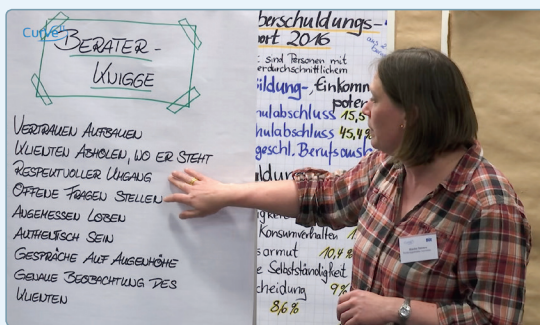 Curve
BERATER-
KNIGGE
VERTRAUEN AUFBAUEN
KLIENTEN ABHOLEN, WO ER STEHT
RESPEKTVOLLER UMGANG
OFFENE FRAGEN STELLEN
ANGEMESSEN LOBEN
AUTHENTISCH SEIN
GESPRÄCHE AUF AUGENHÖHE
GENAUE BEOBACHTUNG DES
KLIENTEN
berschuldungs-
ort 2016
sind Personen mit
erdurchschnittlichem
ildung-, Einkomm
poten
hulabschluss 15,5
hulabschluss 45,4%
geschl. Berufsausb
Konsumverhalten
armut 10,4%
e Selbstständigkeit
cheidung 9%
8,6%